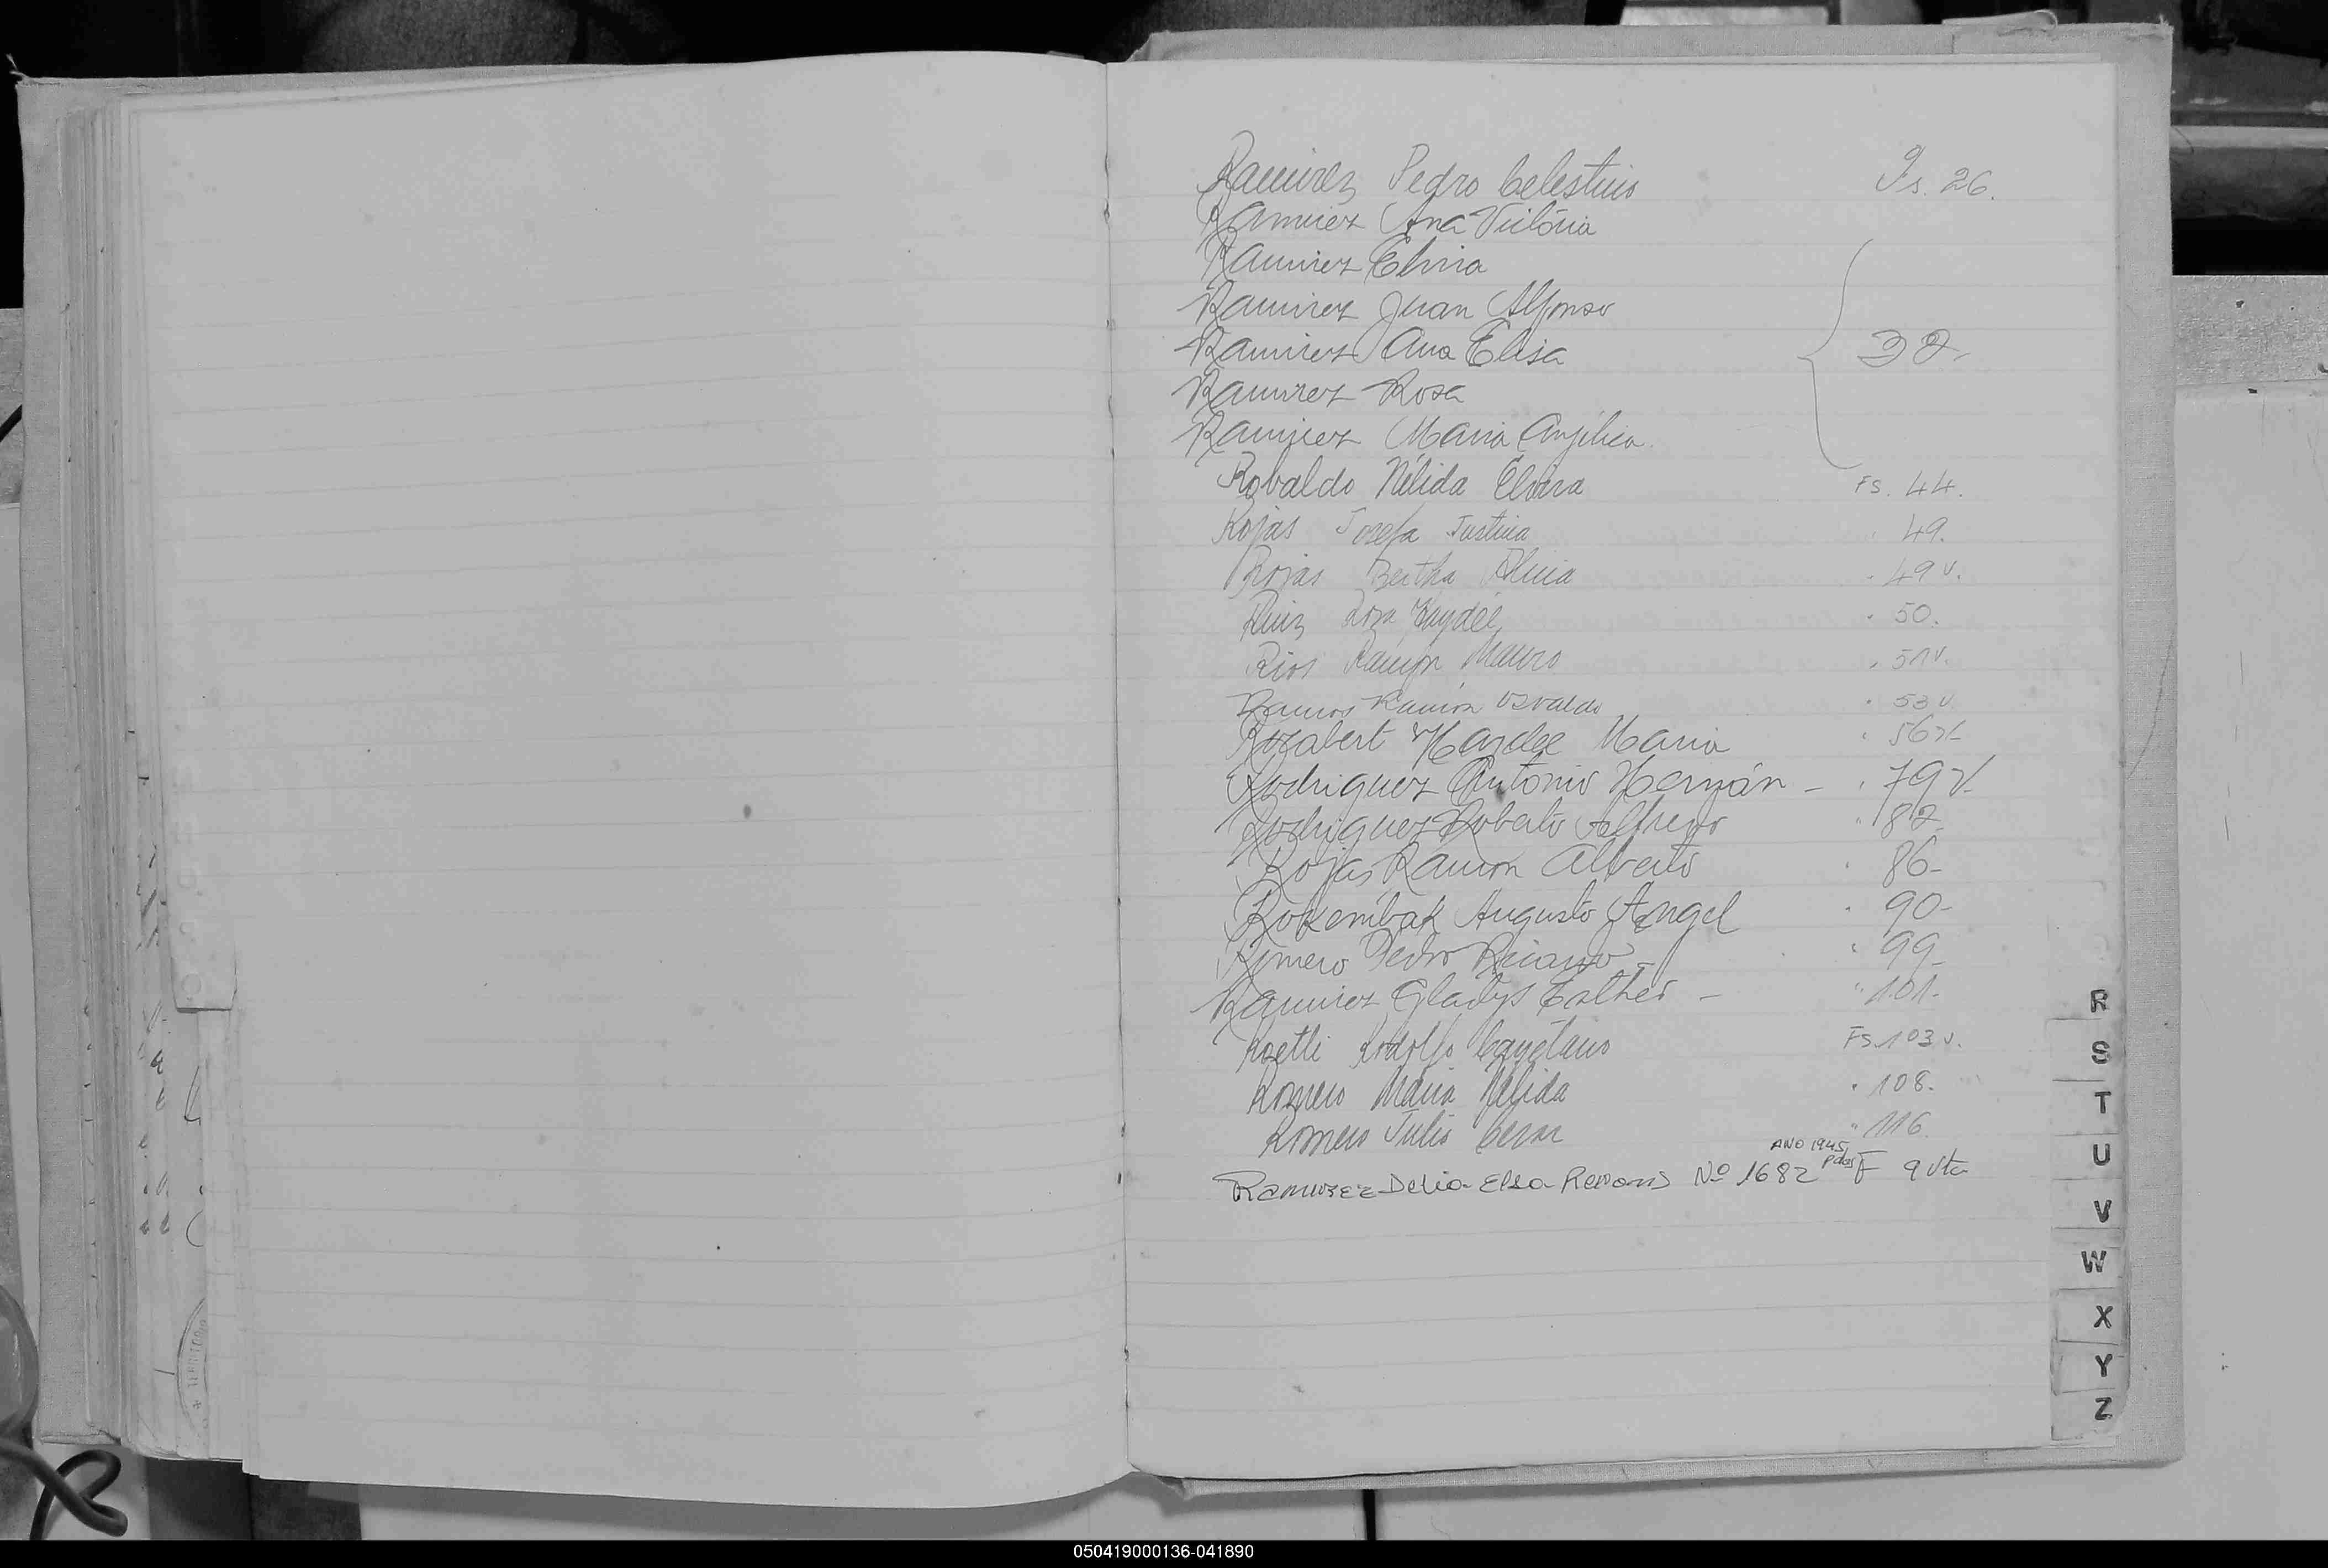 Ramirez Pedro Celestino Fs. 26.
Ramirez Ana Victoria
Ramirez Elvira
Ramirez Juan Alfonso
Ramirez Ana Elisa
Ramirez Rosa
Ramirez Maria Angélica
Robaldo Nélida Elvira Fs. 44.
Rojas Josefa Justina " 49.
Rojas Bertha Alicia " 49 v.
Ruiz Rosa Haydée " 50.
Rios Ramón Mauro " 51 v.
Ramos Ramón Osvaldo " 53 v
Haydee Maria " 56 v
Rodriguez Antonio Hernán - " 79 v
Rodriguez Roberto Alfredo " 82
Rojas Ramon Alberto " 86-
Augusto Angel " 90-
Romero Pedro Ricardo - " 99-
Ramirez Gladys Esther - " 101-
Rodolfo Cayetano Fs. 103 v.
Romero Maria Nélida " 108.
Romero Julio Cesar " 116
AÑO 1945
Ramirez Delia Elsa No 1682 F 9 vta
R
S
T
U
V
W
X
Y
Z
050419000136-041890